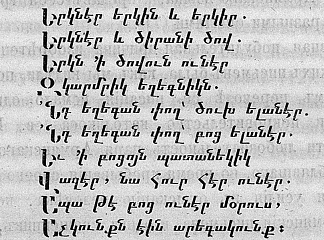 Երկնէր երկին և երկիր.
Երկնէր և ծիրանի ծով.
Երկն 'ի ծովուն ունէր
Զկարմրիկ եղեգնիկն.
Ընդ եղեգան փող՝ ծուխ ելանէր.
Ընդ եղեգան փող՝ բոց ելանէր.
Եւ 'ի բոցոյն պատանեկիկ
վազէր, նա Հուր Հէր ունէր.
Ապա թէ բոց ունէր մօրուս,
Աչկունքն էին արեգակունք: